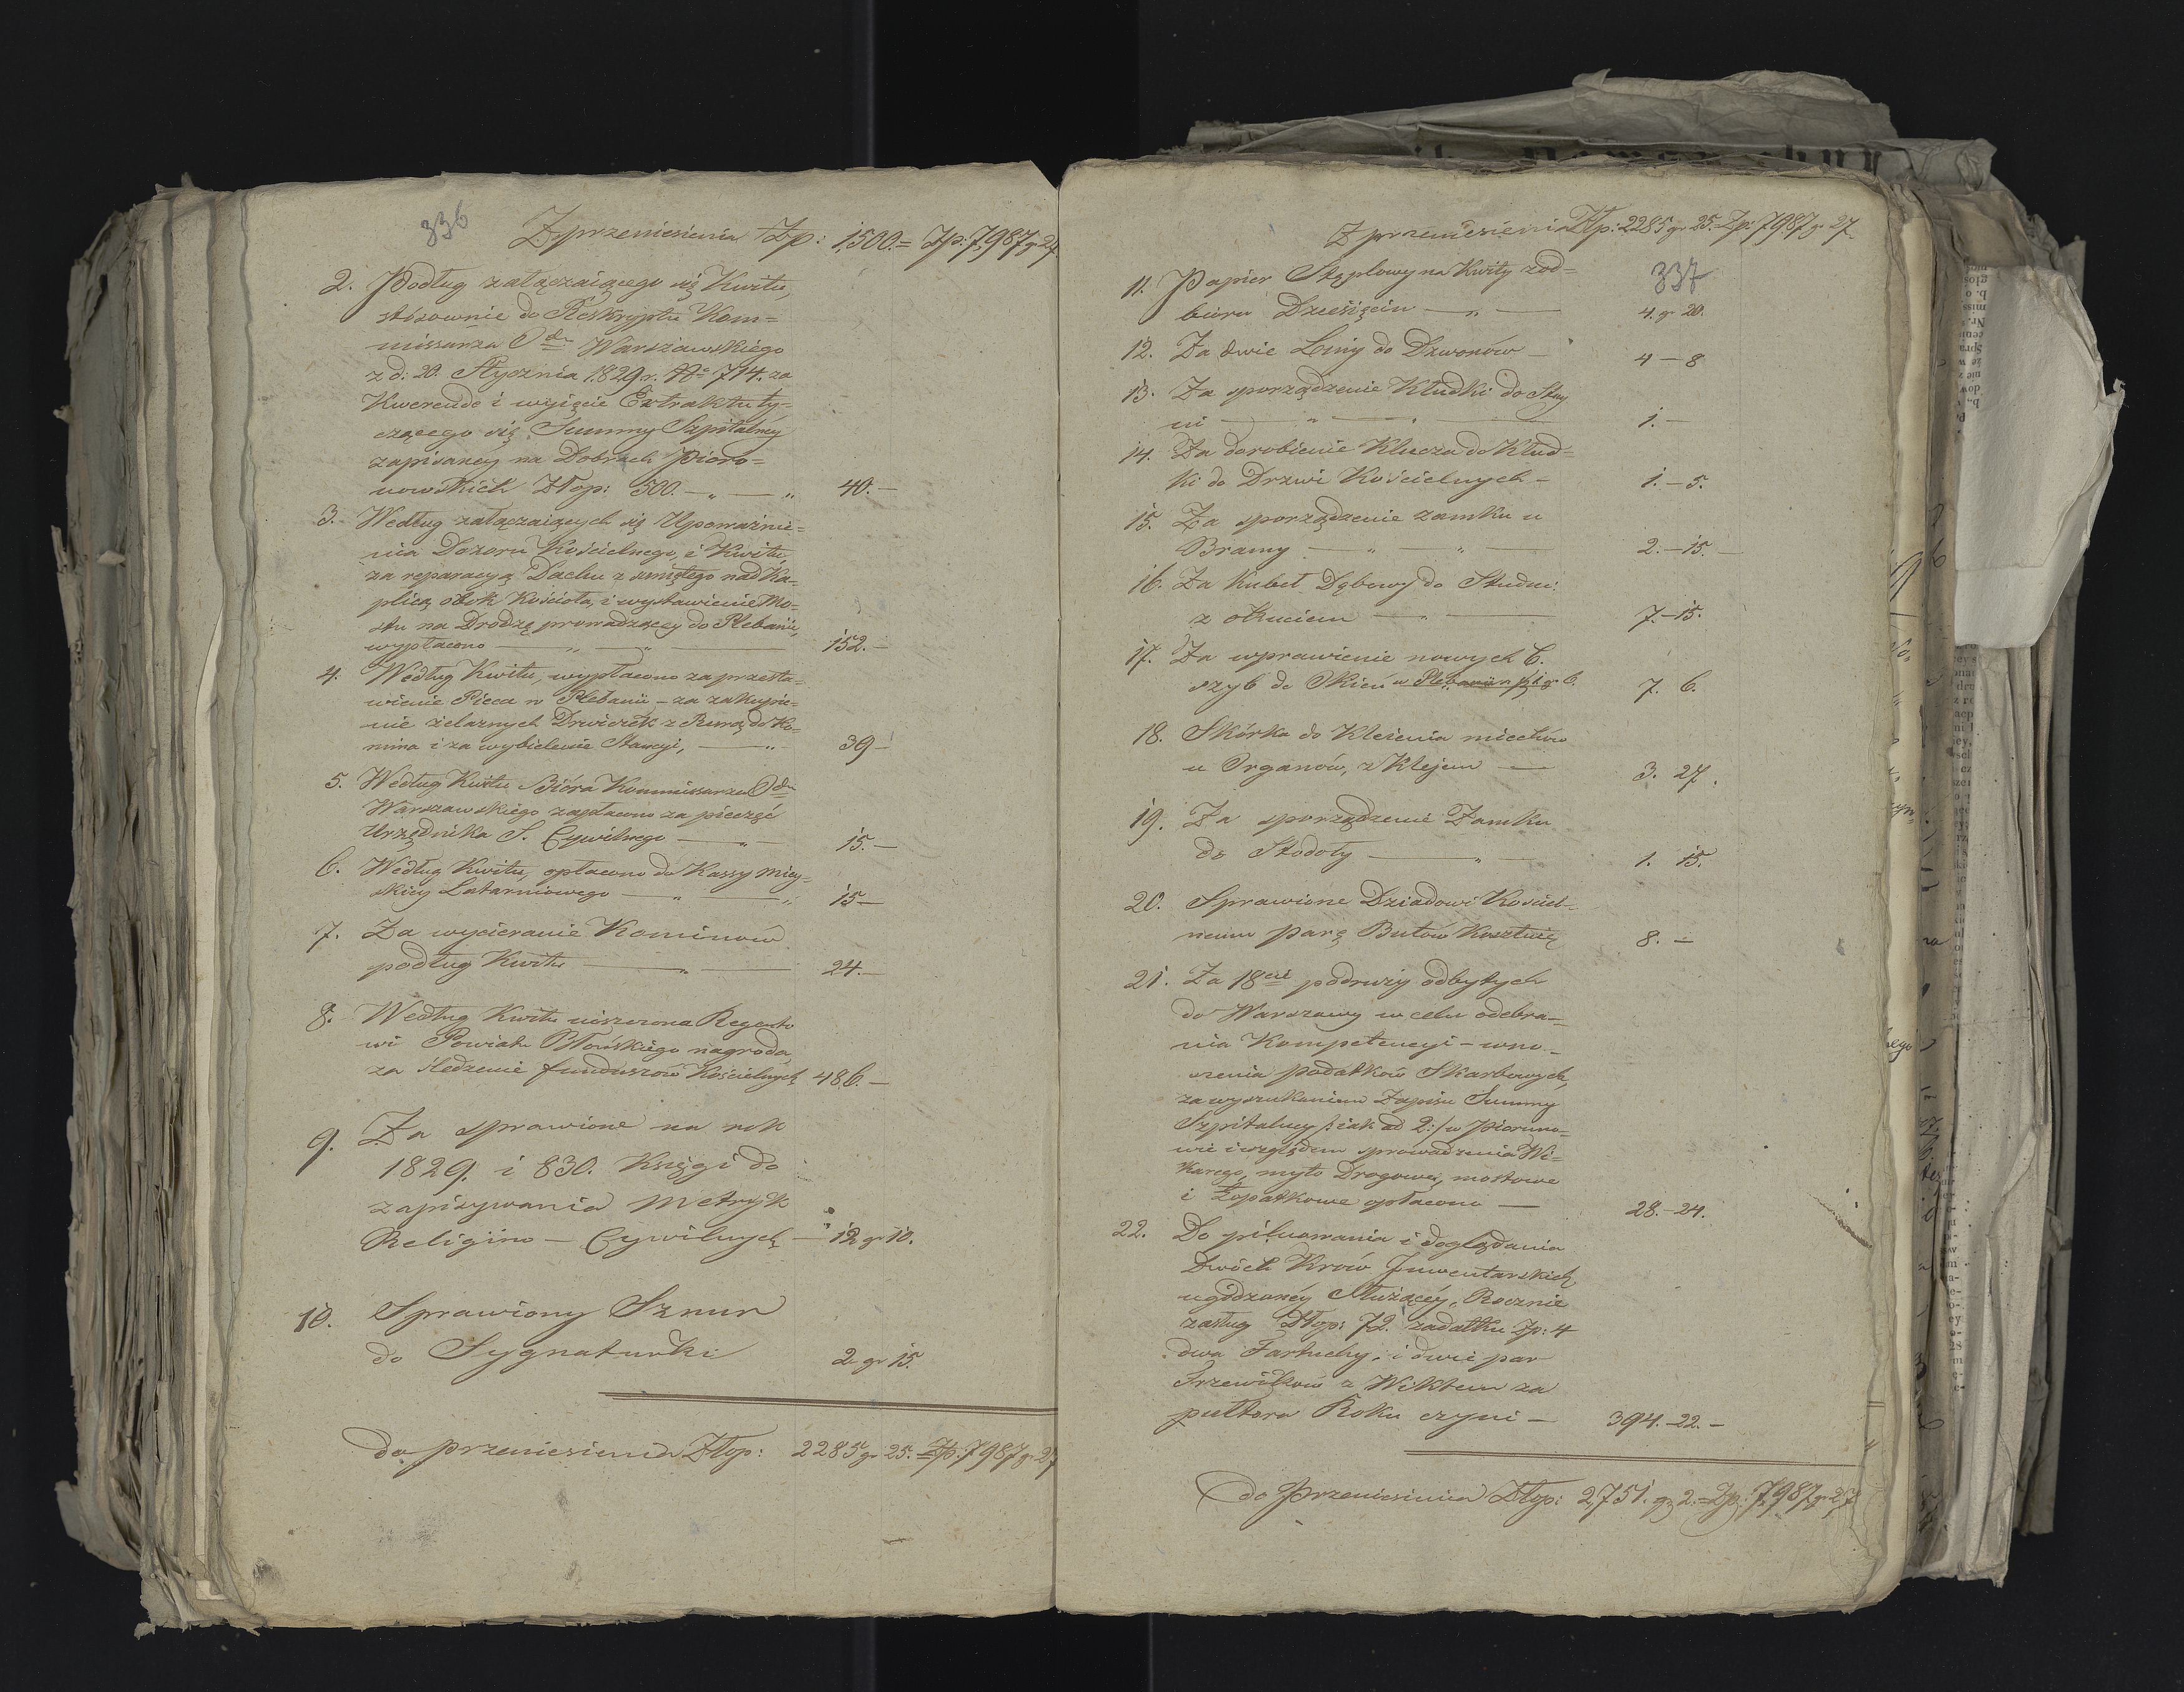 336
Z przeniesienia Zp: 1,500.= Zp: 7,987 gr 27.
2. Podług załączaiącego się Kwitu,
stosownie do Reskryptu Kom=
missarza Odu Warszawskiego
z d: 20. Stycznia 1829 r. No 714. za
Kwerendę i wyięcie Extraktu ty=
czącego się Summy Szpitalney
zapisanéy na Dobrach Pioro=
nowskich Złop: 500. — „ — „ 40. —
3. Według załączaiących się Upoważnie=
nia Dozoru Kościelnego, i Kwitu
za reparacyą Dachu z
nad Ka=
plicą obok Kościoła, i wystawienie Mo=
stu na Drodzę prowadzącey do Plebanii,
wypłacono — „ — „ — 152. —
4. Według Kwitu, wypłacono za przesta=
wienie Pieca w Plebanii — za zakupie=
nie żelaznych Drwiczek z Ramą do Ko=
mina i za wybielenie Stancyi, — „ 39 —
5. Według Kwitu Bióra Kommissarza Odu
Warszawskiego zapłacono za pieczęć
Urzędnika S. Cywilnego — „ — 15. —
6. Według Kwitu, opłacono do Kassy Miey=
skiey Latarniowego — „ — „ 15 —
7. Za wycieranie Kominów
podług Kwitu — „ — 24. —
8. Według Kwitu uiszczona Regento
wi Powiatu Błońskiego nagroda,
za śledzenie funduszów Kościelnych 486. —
9. Za sprawione na rok
1829. i 830. Księgi do
zapisywania Metryk
Religino — Cywilnych — 12 gr 10.
10. Sprawiony Sznur
do Sygnaturki 2 gr 15.
do przeniesienia Złop: 2285 gr 25. = Zp: 7,987 gr 27
Z przeniesienia Złp: 2285 gr 25. Zp: 7987 gr 27.
337
11. Papier Stęplowy na Kwity zod=
bioru Dziesięcin — „ — 4. gr 20.
12. Za dwie Liny do Dzwonów 4 — 8
13. Za sporządzenie Kłudki do Stay
ni — „ — 1. —
14. Za dorobienie Klucza do Kłud=
ki do Drzwi Kościelnych — 1. — 5.
15. Za sporządzenie zamku u
Bramy — „ — „ — 2. — 15. —
16. Za Kubeł Dębowy do Studni
z okuciem — „ — 7. — 15.
17. Za wprawienie nowych 6.
szyb do Okien w Plebanii 7. 6.
18. Skórka do Klejenia miechów
u Organów, z Klejem — 3. 27.
19. Za sporządzenie Zamku
do Stodoły — „ — 1. 15.
20. Sprawione Dziadowi Kościel=
nemu parę Butów Kosztuią 8. —
21. Za 18cie podruży odbytych
do Warszawy w celu odebra=
nia Kompetencyi — wno=
szenia podatków Skarbowych,
za wyszukaniem Zapisu Summy
Szpitalney /: iak ad 2:/ w Pioruno=
wie i względem sprowadzenia Wi=
karego, myto Drogowe, mostowe
i Łopatkowe opłacono — 28. — 24.
22. Do pilnowania i doglądania
Dwóch Krów Inwentarskich,
ugodzonéy Służącéy, Rocznie
zasług Złop: 72. zadatku Zp: 4
dwa Fartuchy, i dwie par
Trzewików z Wiktem za
pułtora Roku czyni — 394. — 22. —
do Przeniesienia Złop: 2,751. gr 2. = Zp: 7,987 gr 27